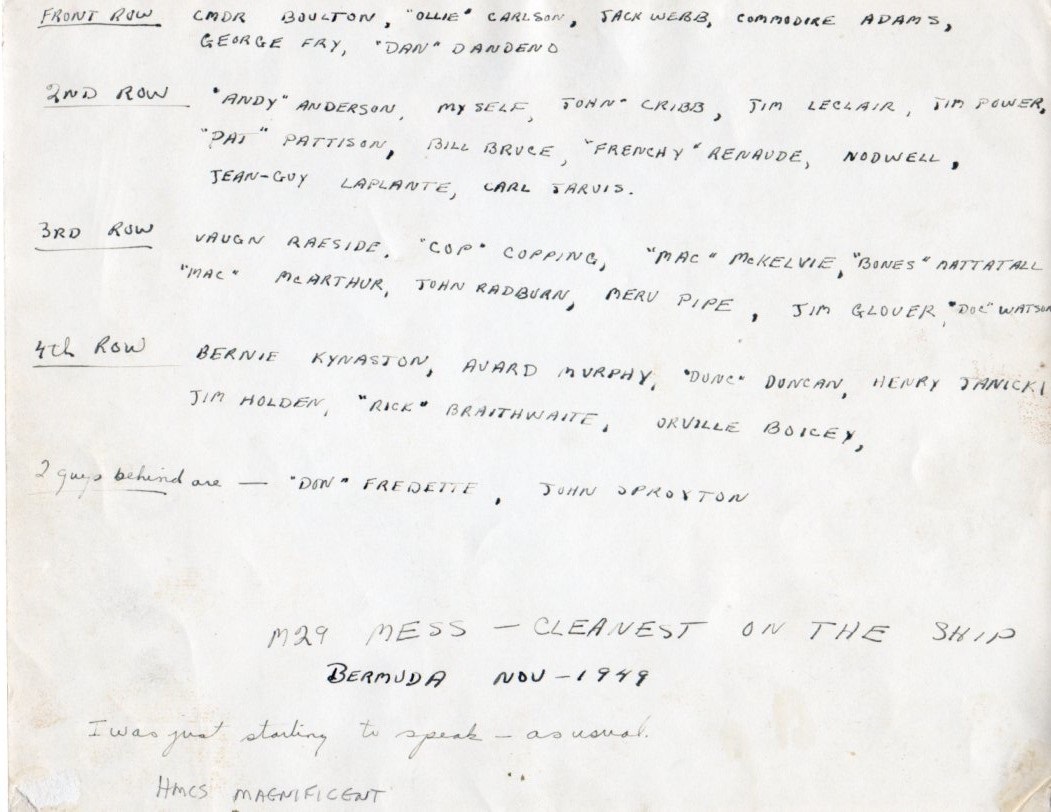 FRONT ROW CMDR BOULTON, "OLLIE" CARLSON, JACK WEBB, COMMODIRE ADAMS,
GEORGE FRY, "DAN" DANDENO
2ND ROW "ANDY" ANDERSON, MYSELF, JOHN" CRIBB, JIM LECLAIR, TIM POWER,
"PAT" PATTISON, BILL BRUCE, "FRENCHY" RENAUDE, NODWELL,
JEAN-GUY LAPLANTE, CARL JARVIS.
3RD ROW VAUGN RAESIDE, "COP" COPPING, "MAC" McKELVIE, "BONES" MATTATALL
"MAC" McARTHUR, JOHN RADBURN, MERV PIPE, JIM GLOVER, "DOC" WATSON
4th ROW BERNIE KYNASTON, AVARD MURPHY, "DUNC" DUNCAN, HENRY JANICKI
JIM HOLDEN, "RICK" BRAITHWAITE, ORVILLE BOICEY,
2 guys behind are — "DON" FREDETTE, JOHN SPROXTON
M29 MESS — CLEANEST ON THE SHIP
BERMUDA NOV – 1949
I was just starting to speak – as usual.
HMCS MAGNIFICENT